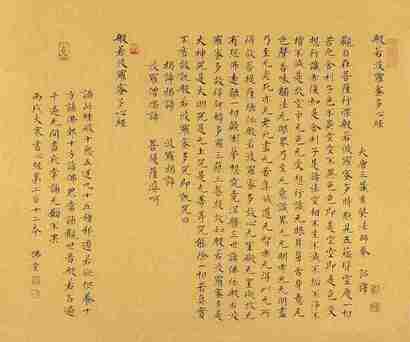 般若波羅蜜多心經
大唐三藏玄奘法師奉 詔譯
觀自在菩薩行深般若波羅蜜多時照見五蘊皆空度一切
苦厄舍利子色不異空空不異色色即是空空即是色受
想行識亦復如是舍利子是諸法空相不生不滅不垢不淨不
增不減是故空中无色无受想行識无眼耳鼻舌身意无
色聲香味觸法无眼界乃至无意識界无无明亦无无明盡
乃至无老死亦无老死盡无苦集滅道无智亦无得以无所
得故菩提薩埵依般若波羅蜜多故心无罣礙无罣礙故无
有恐怖遠離一切顛倒夢想究竟涅槃三世諸佛依般若波
羅蜜多故得阿耨多羅三藐三菩提故知般若波羅蜜多是
大神咒是大明咒是无上咒是无等等咒能除一切苦真實
不虛故說般若波羅蜜多咒即說咒曰
揭諦揭諦 波羅揭諦
波羅僧揭諦 菩提薩婆訶
般若波羅蜜多心經
誦此經破十惡五逆九十五種邪道若欲供養十
方諸佛報十方諸佛恩當誦觀世音般若百遍
千遍无間晝夜常誦无願不果
丙戌大寒書心經第二百十二本